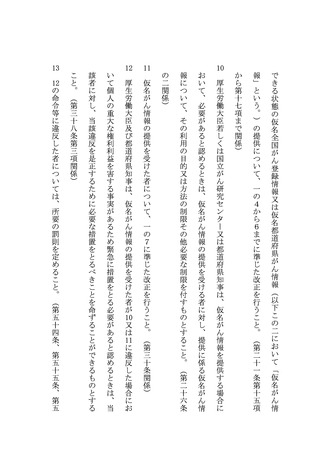 できる状態の仮名全国がん登録情報又は仮名都道府県がん情報（以下この二において「仮名がん情
報」という。）の提供について、一の４から６までに準じた改正を行うこと。（第二十一条第十五項
から第十七項まで関係）
10　厚生労働大臣若しくは国立がん研究センター又は都道府県知事は、仮名がん情報を提供する場合に
おいて、必要があると認めるときは、仮名がん情報の提供を受ける者に対し、提供に係る仮名がん情
報について、その利用の目的又は方法の制限その他必要な制限を付すものとすること。（第二十六条
の二関係）
11　仮名がん情報の提供を受けた者について、一の７に準じた改正を行うこと。（第三十条関係）
12　厚生労働大臣及び都道府県知事は、仮名がん情報の提供を受けた者が10又は11に違反した場合にお
いて個人の重大な権利利益を害する事実があるため緊急に措置をとる必要があると認めるときは、当
該者に対し、当該違反を是正するために必要な措置をとるべきことを命ずることができるものとする
こと。（第三十八条第三項関係）
13　12の命令等に違反した者については、所要の罰則を定めること。（第五十四条、第五十五条、第五